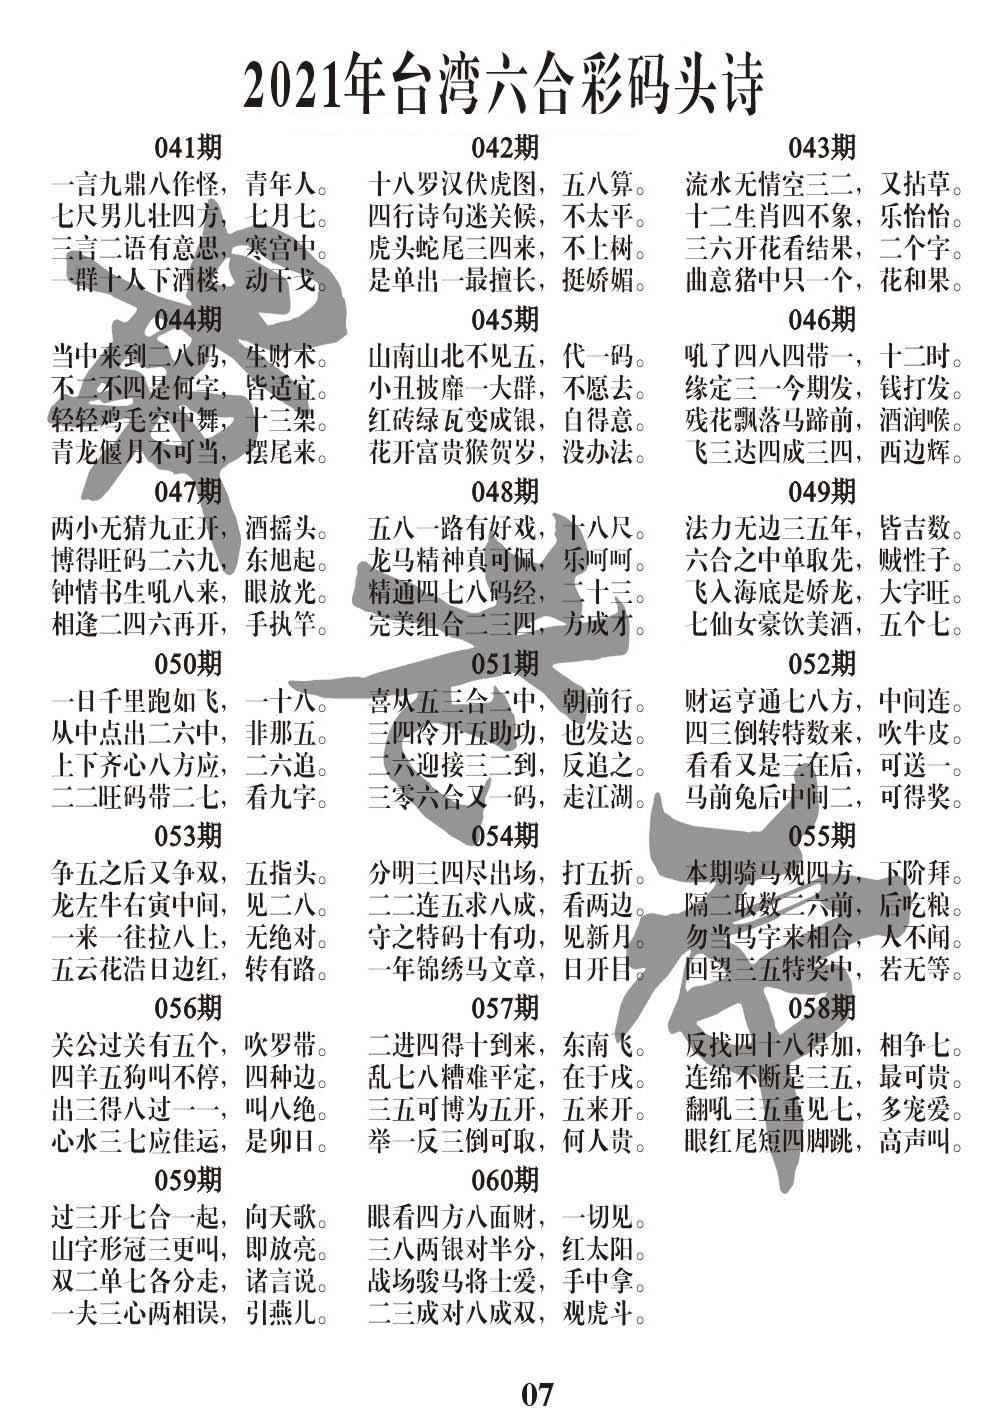 2021年台湾六合彩码头诗
041期
一言九鼎八作怪，青年人。
七尺男儿壮四方，七月七。
三言二语有意思，寒宫中。
一群十人下酒楼，动干戈。
042期
十八罗汉伏虎图，五八算。
四行诗句迷关候，不太平。
虎头蛇尾三四来，不上树。
是单出一最擅长，挺娇媚。
043期
流水无情空三二，又拈草。
十二生肖四不象，乐怡怡。
三六开花看结果，二个字。
曲意猪中只一个，花和果。
044期
当中来到二八码，生财术。
不二不四是何字，皆适宜。
轻轻鸡毛空中舞，十三架。
青龙偃月不可当，摆尾来。
045期
山南山北不见五，代一码。
小丑披靡一大群，不愿去。
红砖绿瓦变成银，自得意。
花开富贵猴贺岁，没办法。
046期
吼了四八四带一，十二时。
缘定三一今期发，钱打发。
残花飘落马蹄前，酒润喉。
飞三达四成三四，西边辉。
047期
两小无猜九正开，酒摇头。
博得旺码二六九，东旭起。
钟情书生吼八来，眼放光。
相逢二四六再开，手执竿。
048期
五八一路有好戏，十八尺。
龙马精神真可佩，乐呵呵。
精通四七八码经，二十三。
完美组合二三四，方成才。
049期
法力无边三五年，皆吉数。
六合之中单取先，贼性子。
飞入海底是娇龙，大字旺。
七仙女豪饮美酒，五个七。
050期
一日千里跑如飞，一十八。
从中点出二六中，非那五。
上下齐心八方应，二六追。
二二旺码带二七，看九字。
051期
喜从五三合二中，朝前行。
三四冷开五助功，也发达。
二六迎接三二到，反追之。
三零六合又一码，走江湖。
052期
财运亨通七八方，中间连。
四三倒转特数来，吹牛皮。
看看又是三在后，可送一。
马前兔后中间二，可得奖。
053期
争五之后又争双，五指头。
龙左牛右寅中间，见二八。
一来一往拉八上，无绝对。
五云花浩日边红，转有路。
054期
分明三四尽出场，打五折。
二二连五求八成，看两边。
守之特码十有功，见新月。
一年锦绣马文章，日开目。
055期
本期骑马观四方，下阶拜。
隔二取数二六前，后吃粮。
勿当马字来相合，人不闻。
回望三五特奖中，若无等。
056期
关公过关有五个，吹罗带。
四羊五狗叫不停，四种边。
出三得八过一一，叫八绝。
心水三七应佳运，是卯日。
057期
二进四得十到来，东南飞。
乱七八糟难平定，在于戌。
三五可博为五开，五来开。
举一反三倒可取，何人贵。
058期
反找四十八得加，相争七。
连绵不断是三五，最可贵。
翻吼三五重见七，多宠爱。
眼红尾短四脚跳，高声叫。
059期
过三开七合一起，向天歌。
山字形冠三更叫，即放亮。
双二单七各分走，诸言说。
一夫三心两相误，引燕儿。
060期
眼看四方八面财，一切见。
三八两银对半分，红太阳。
战场骏马将士爱，手中拿。
二三成对八成双，观虎斗。
07